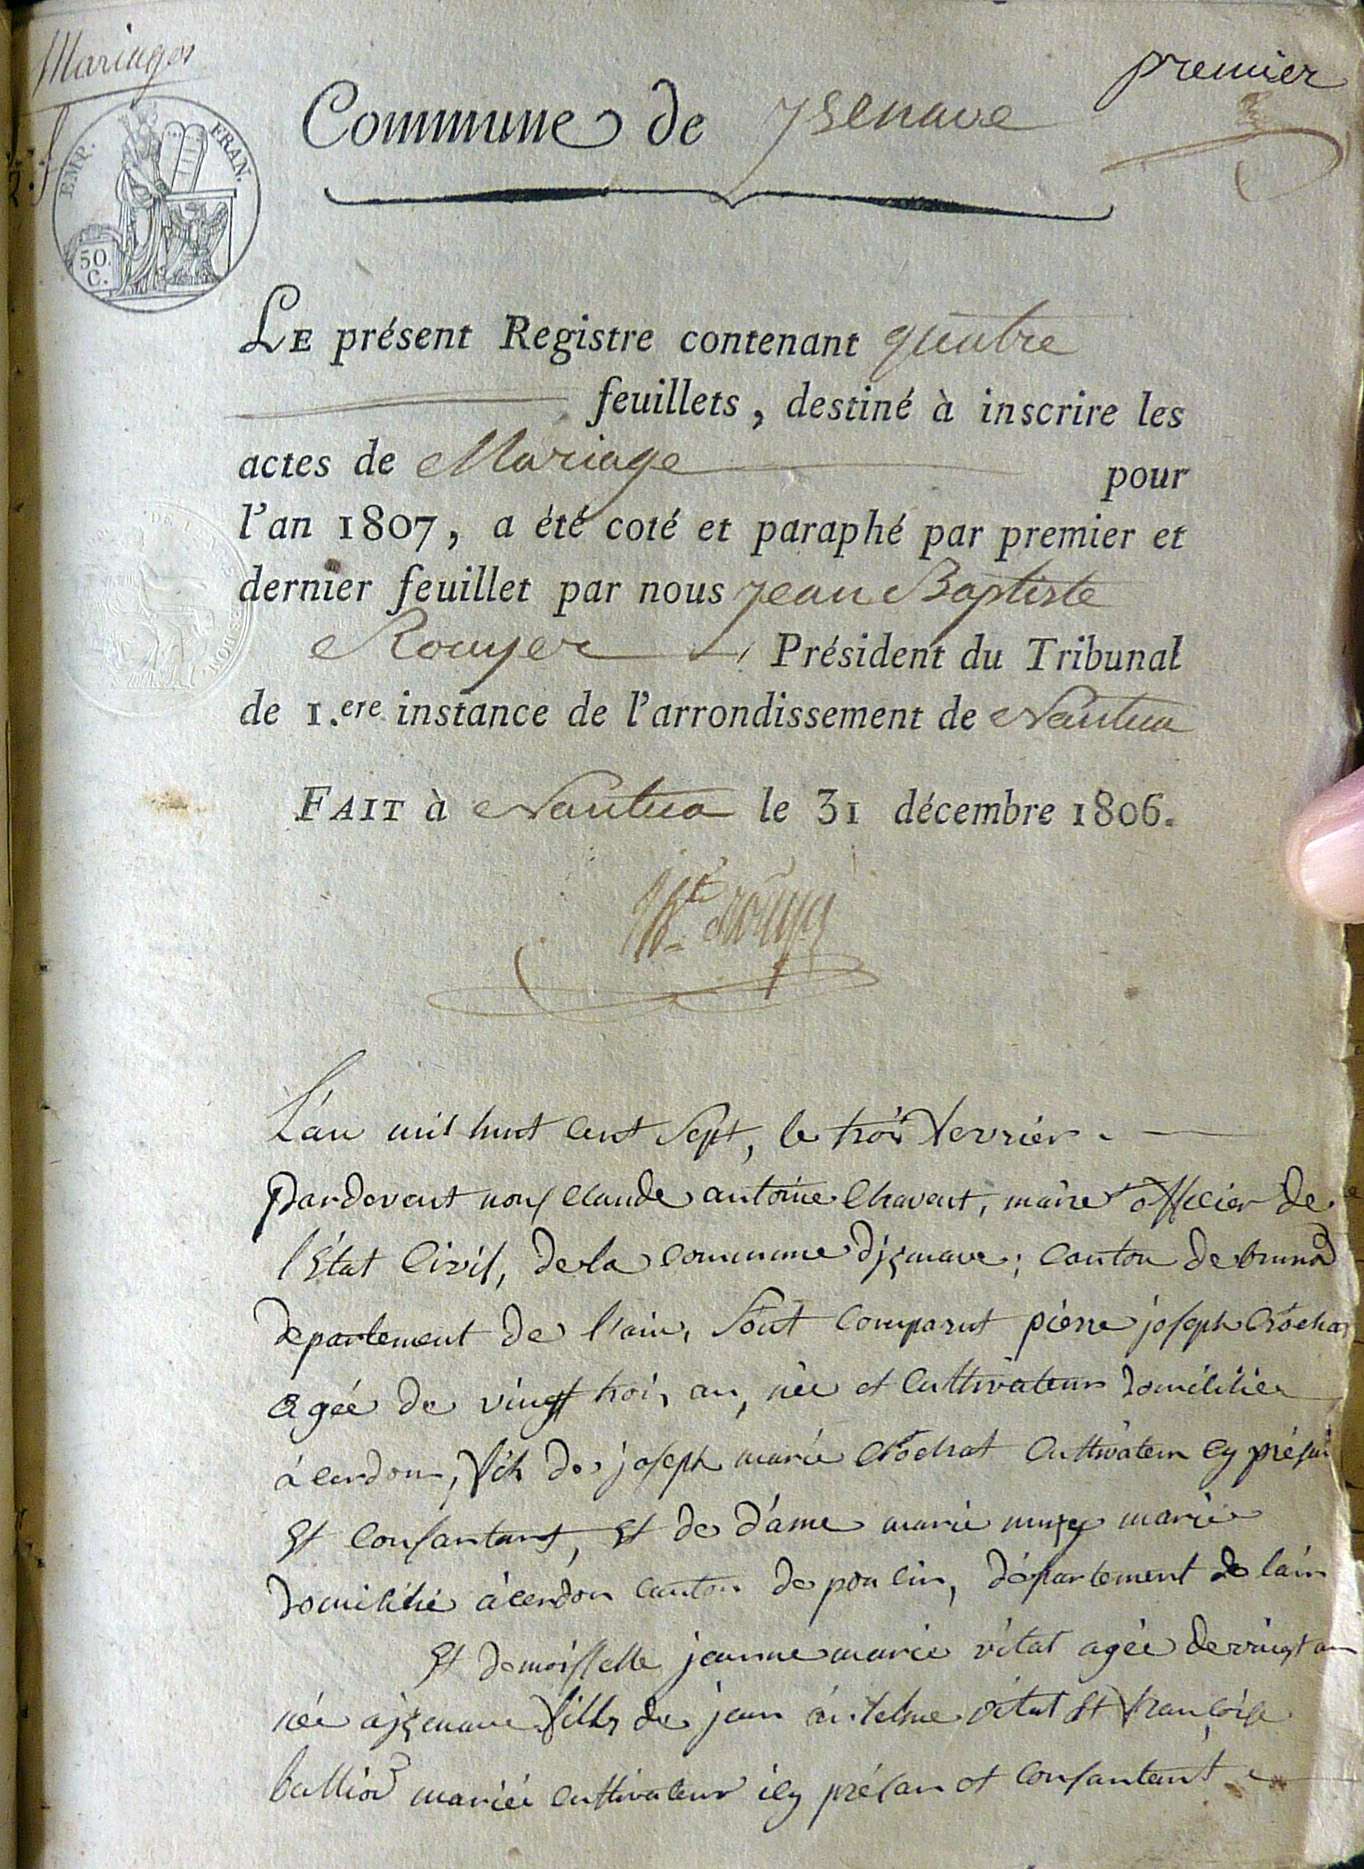 Mariages
premier
Commune de ysenave
EMP. FRAN.
50. C.
LE présent Registre contenant quatre
feuillets, destiné à inscrire les
actes de Mariage pour
l'an 1807, a été coté et paraphé par premier et
dernier feuillet par nous Jean Baptiste
Rouyer Président du Tribunal
de 1.ere instance de l'arrondissement de Nantua
FAIT à Nantua le 31 décembre 1806.
L'an mil huit cent sept, le trois fevrier
pardevent nous claude antoine Chavent, maire officier de
l'état Civil, de la commune dizenave; canton de brenod
departement de l'ain, sont comparut pierre joseph Crochat
agée de vingt trois an, née et cultivateur domicilier
à cerdon, fils de joseph marie Crochat cultivateur cy présan
et consantant, et de dame marie muzy mariée
domicilié à cerdon canton de poncin, département de lain
et demoisselle jeanne marie vitat agée de vingt an
née a izenave fille de jean antelme vitat et françoise
balliod mariée cultivateur icy présan et consantant